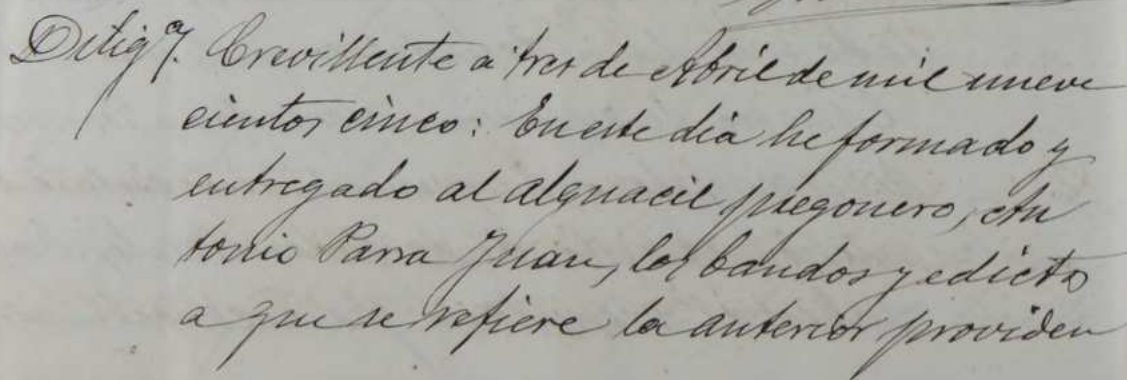 Diligª. Crevillente a tres de Abril de mil nueve
cientos cinco: En este dia he formado y
entregado al alguacil pregonero, An
tonio Parra Juan, los bandos y edicto
a que se refiere la anterior providen